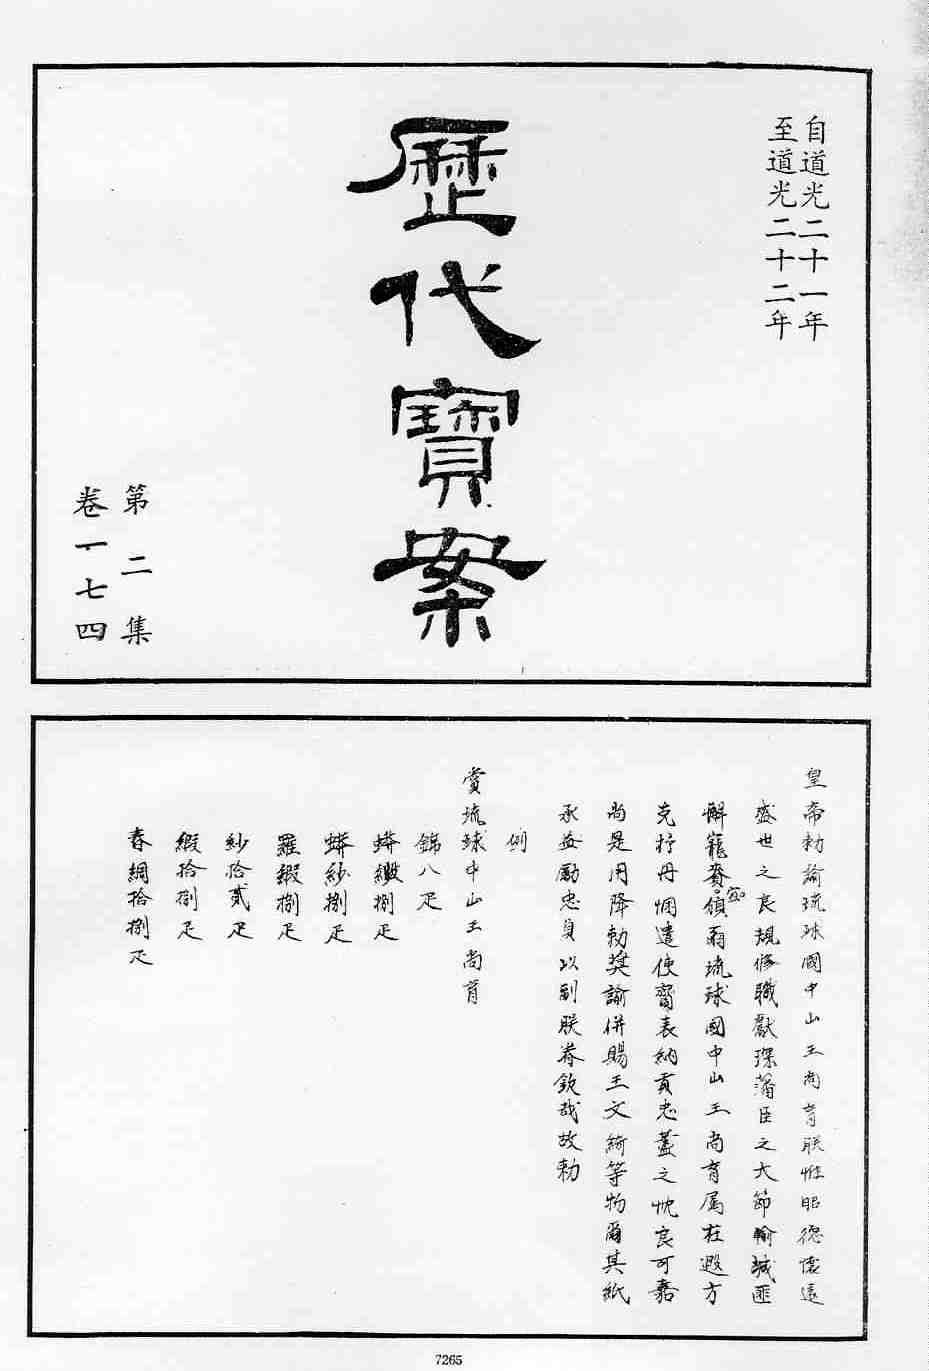 自道光二十一年
至道光二十二年
歷代寶案
第二集
卷一七四
皇帝勅諭琉球國中山王尚育朕惟昭德懷遠
盛世之良規修職獻琛藩臣之大節輸誠匪
懈寵賚宜頒爾琉球國中山王尚育属在遐方
克抒丹悃遣使齎表納貢忠藎之忱良可嘉
尚是用降勅奨諭併賜王文綺等物爾其紙
承益勵忠貞以副朕眷欽哉故勅
例
賞琉球中山王尚育
錦八疋
蟒緞捌疋
蟒紗捌疋
羅緞捌疋
紗拾貳疋
緞拾捌疋
春綢拾捌疋
7265